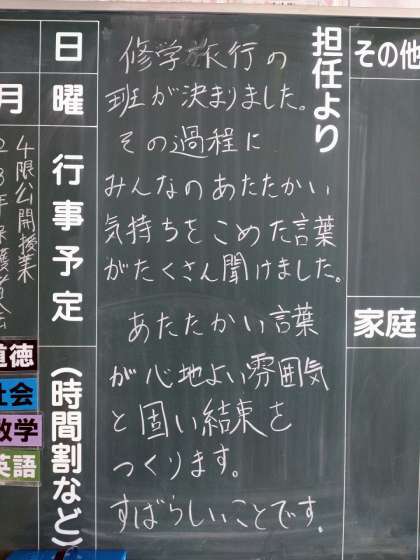 その他
家庭
担任より
修学旅行の
班が決まりました。
その過程に
みんなのあたたかい
気持ちをこめた言葉
がたくさん聞けました。
あたたかい言葉
が心地よい雰囲気
と固い結束を
つくります。
すばらしいことです.
日
曜
行事予定
(時間割など)
月
4限公開授業
道徳
社会
数学
英語